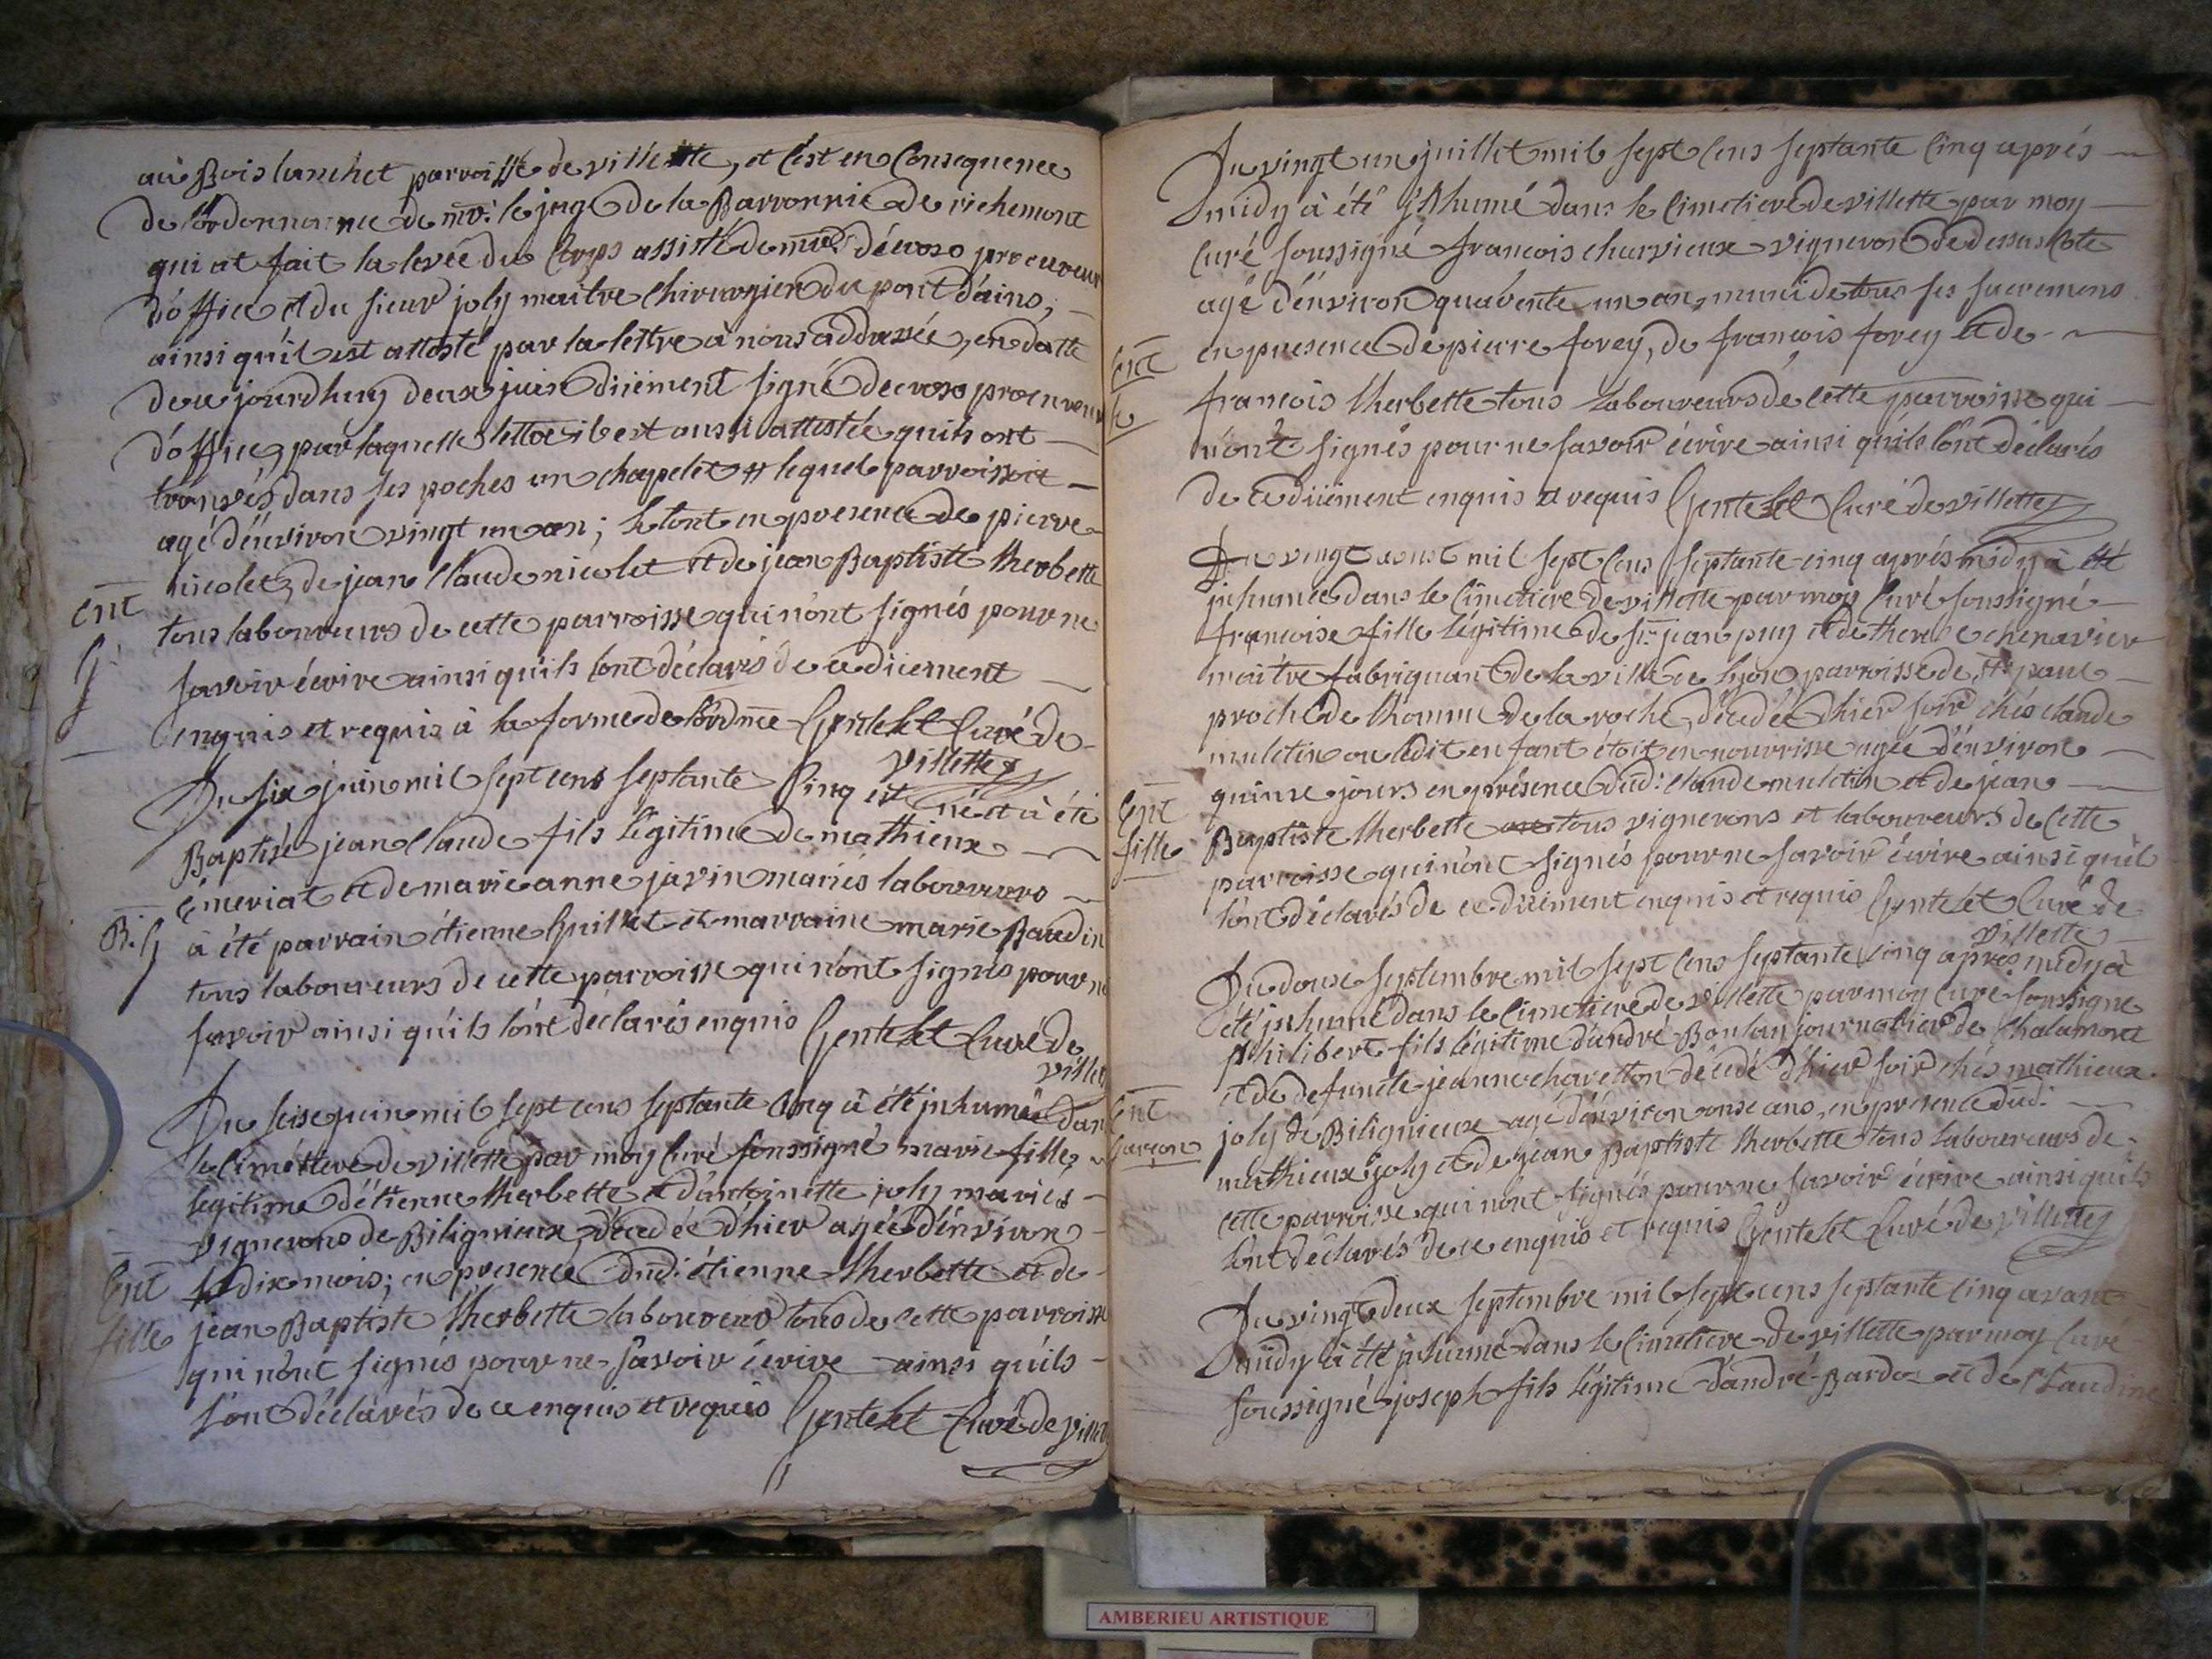 au Bois lanchet parroisse de villette, et c'est en Consequence
de l'ordonnance de mr. le juge de la Barronnie de richemont
qui at fait la levée du Corps assisté de mre décroso procureur
d'office et du sieur joly maitre Chirurgien du pont d'ains,
ainsi qu'il est attesté par la lettre à nous addressée, en datte
de ce jourdhuy deux juin düement signé decroso procureur
d'office, par laquelle lettre il est aussi attestée quils ont
trouvés dans ses poches un chapelet lequel parroissoit
agé d'énviron vingt un an; le tout en presence de pierre
nicolet, de jean Claude nicolet et de jean Baptiste therbette
Ent
tous laboureurs de cette parroisse qui n'ont signés pour ne
g.
savoir écrire ainsi qu'ils l'ont déclarés de ce düement
enquis et requis à la forme de l'ordnce Gentelet Curé de
villette
Du six juin mil sept cens septante Cinq est né et à été
Baptisé jean Claude fils légitime de mathieux
émeriat et de marie anne javin mariés laboureurs
B. g
à été parrain étienne Guillet et marraine marie Baudin
tous laboureurs de cette parroisse qui n'ont signés pour ne
savoir ainsi qu'ils l'ont déclarés enquis Gentelet Curé de
villet
Du seise juin mil sept cens septante Cinq à été inhumée dans
le Cimétiere de villette par moy Curé soussigné marie fille
légitime d'étienne therbette et d'antoinette joly mariés
vignerons de Biligneux, décedée d'hier agée d'énviron
Ent
dix mois; en presence dud: étienne therbette et de
fille
jean Baptiste therbette laboureurs tous de cette parroisse
qui n'ont signés pour ne savoir écrire ainsi qu'ils
l'ont déclarés de ce enquis et requis Gentelet Curé de villet
Du vingt un juillet mil sept Cens septante Cinq aprés
midy à été inhumé dans le Cimetiere de villette par moy
Curé soussigné francois charvieux vigneron de dessus Cote
agé d'énviron quarente un an, muni de tous ses sacremens
en presence de pierre forey, de françois forey et de
Ent
françois therbette tous laboureurs de cette parroisse qui
n'ont signés pour ne savoir écrire ainsi qu'ils l'ont déclarés
de ce düement enquis et requis Gentelet Curé de villette
Du vingt aoust mil sept Cens septante-cinq aprés midy à été
inhumée dans le Cimetiere de villette par moy Curé soussigné
francoise fille légitime de sr. jean puy et de therese chenavier
maitre fabriquant de la ville de lyon parroisse de st. paul
proche de lhomme de la roche, décedée d'hier soir chés claude
muletin ou ledit enfant étoit en nourrisse agée d'énviron
quinse jours en présence dud: claude muletin et de jean
Ent
Baptiste therbette tous vignerons et laboureurs de Cette
fille
parroisse qui n'ont signés pour ne savoir écrire ainsi quil
l'ont déclarés de ce düement enquis et requis Gentelet Curé de
villette
Du douse septembre mil sept Cens septante Cinq après midy à
été inhumé dans le Cimetiere de villette par moy Curé soussigné
philibert fils légitime d'andré Boulan journalier de Chalamont
et de defuncte jeanne charetton décedé d'hier soir chés mathieux
Ent
joly de Biligneux agé d'énviron onse ans, en presence dud:
garçon
mathieux joly et de jean Baptiste therbette tous laboureurs de
cette parroisse qui n'ont signés pour ne savoir écrire ainsi quils
l'ont déclarés de ce enquis et requis Gentelet Curé de villette
Du vingt deux septembre mil sept cens septante Cinq avant
midy à été inhumé dans le Cimétiere de villette par moy Curé
soussigné joseph fils légitime d'andré Bardoz et de Claudine
AMBERIEU ARTISTIQUE